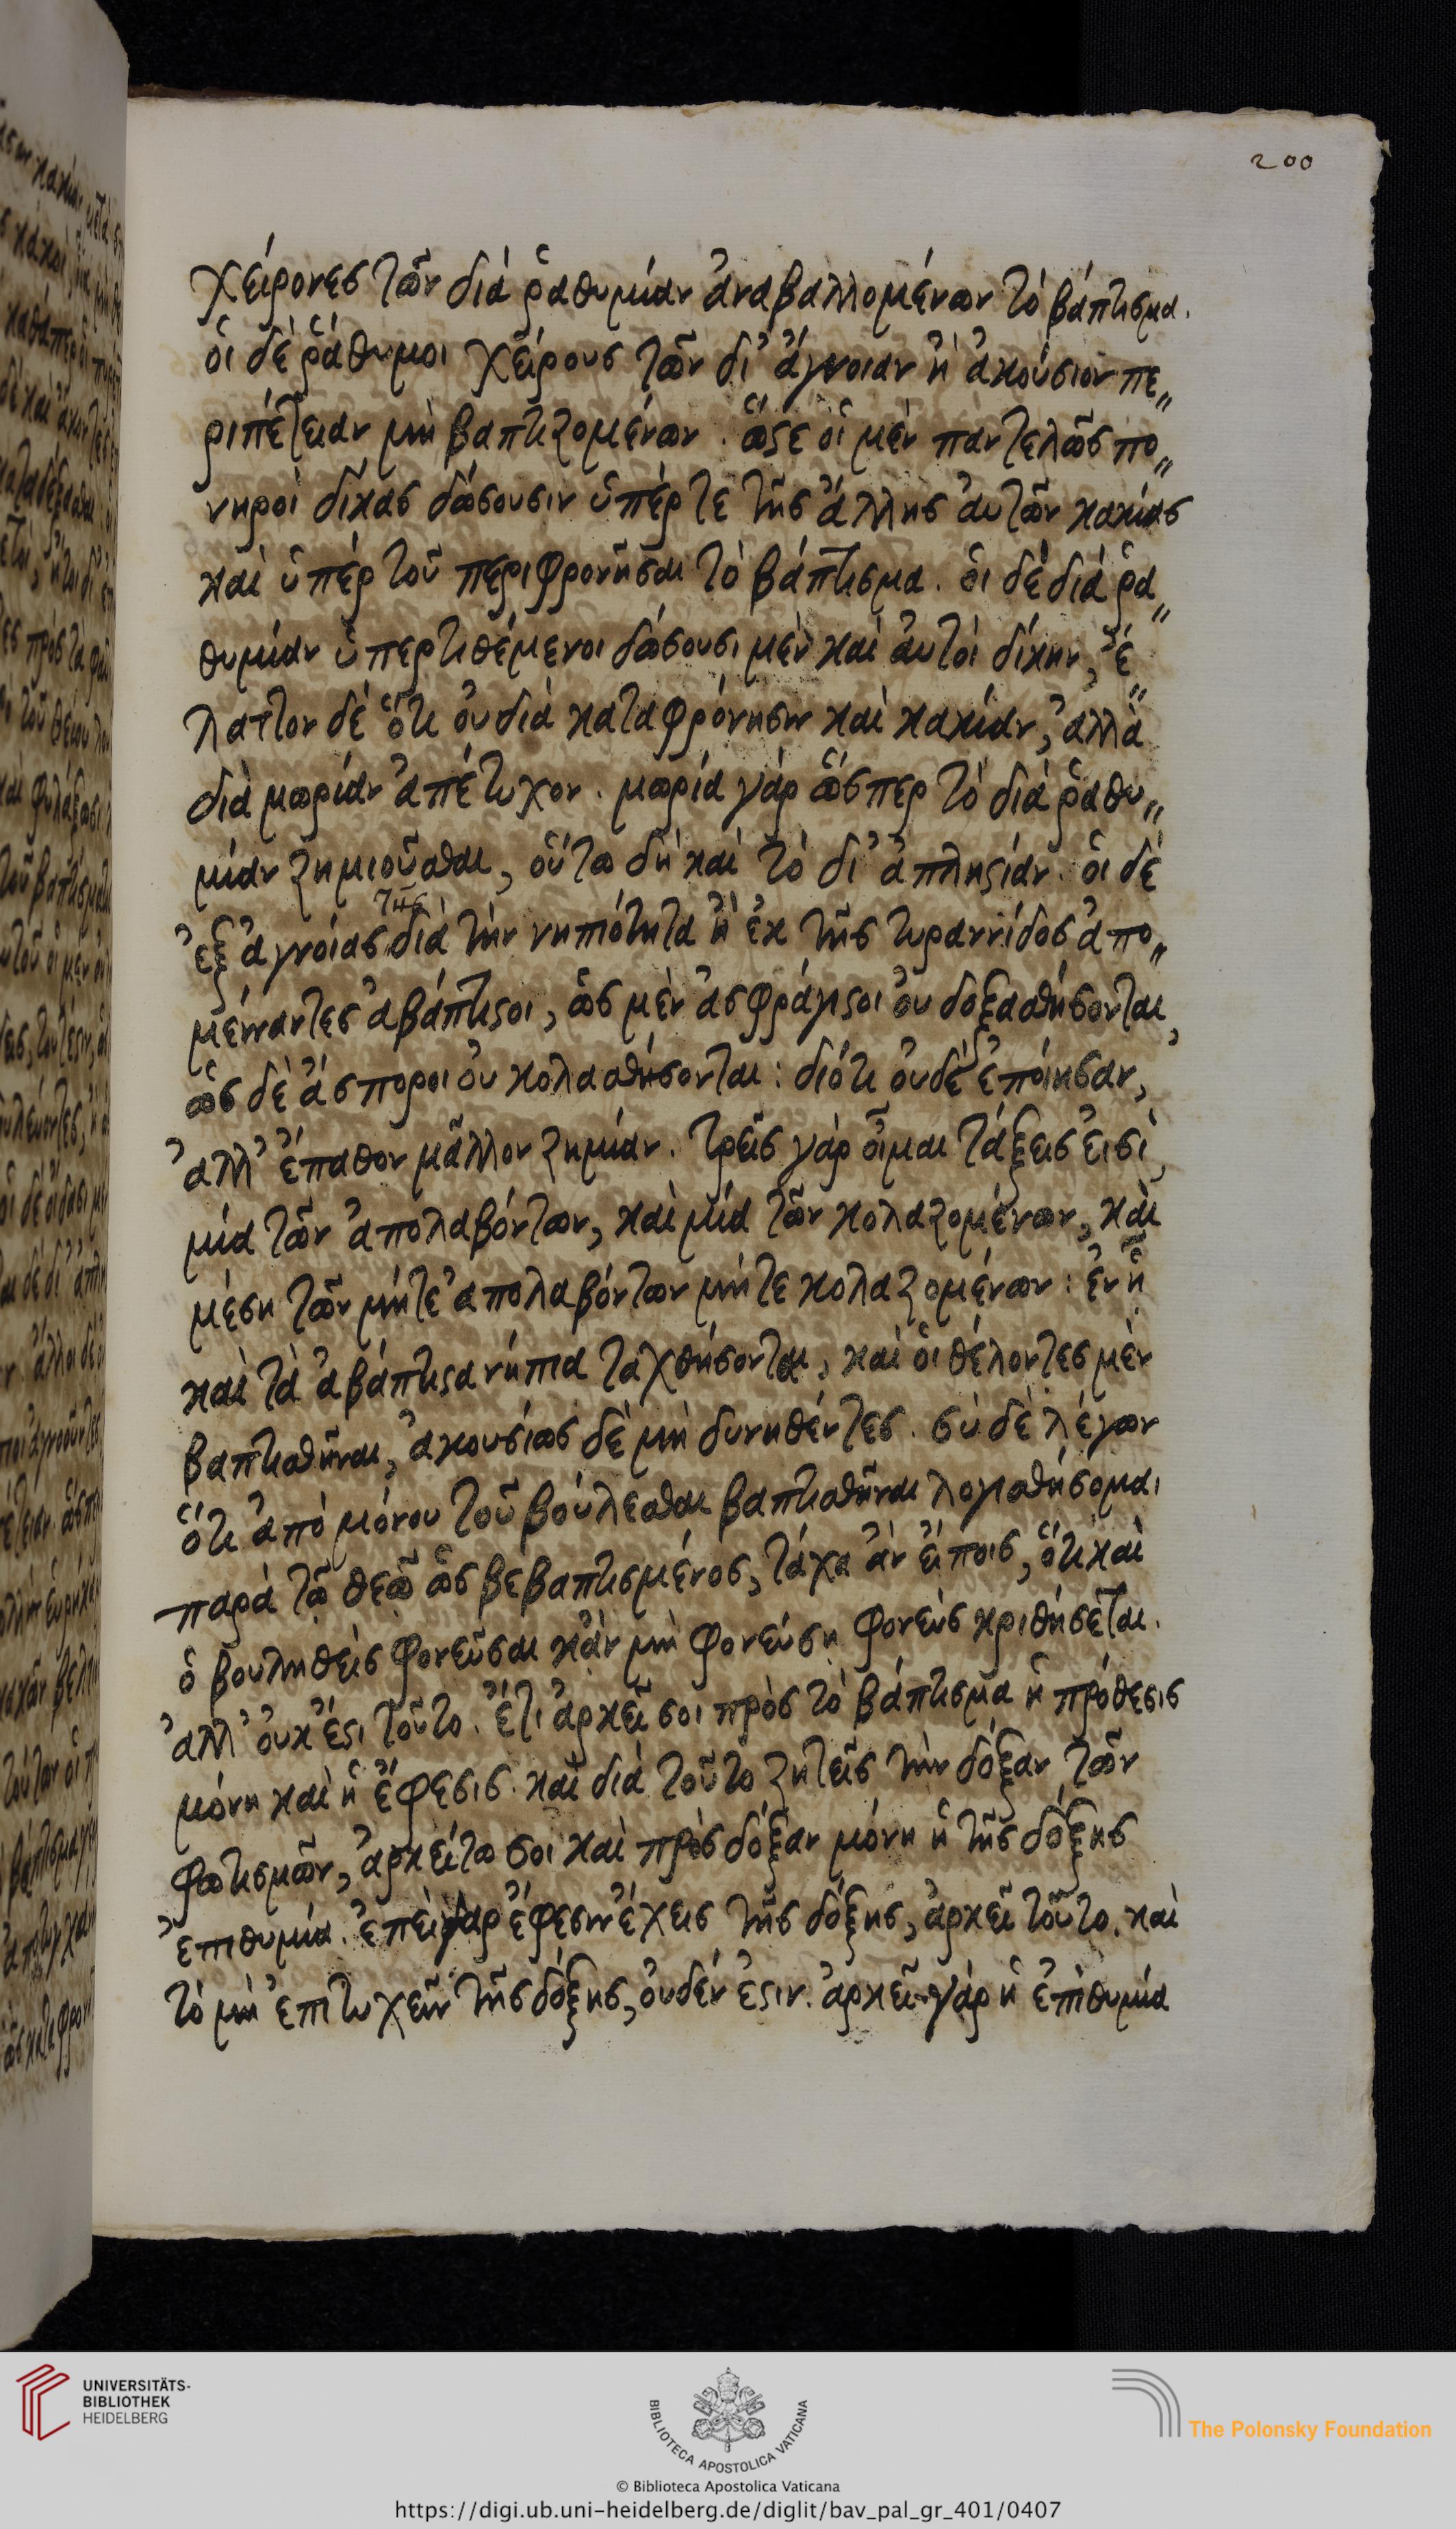 200
χείρονες τῶν διὰ ῥαθυμίαν ἀναβαλλομένων τὸ βάπτισμα.
οἱ δὲ ῥάθυμοι χείρους τῶν δι' ἄγνοιαν ἢ ἀκούσιον πε„
ριπέτειαν μὴ βαπτιζομένων. ὥστε οἱ μὲν παντελῶς πο„
νηροὶ δίκας δώσουσιν ὑπέρ τε τῆς ἄλλης αὐτῶν κακίας
καὶ ὑπὲρ τοῦ περιφρονῆσαι τὸ βάπτισμα. οἱ δὲ διὰ ῥα„
θυμίαν ὑπερτιθέμενοι δώσουσι μὲν καὶ αὐτοὶ δίκην, ἔ„
λαττον δὲ ὅτι οὐ διὰ καταφρόνησιν καὶ κακίαν, ἀλλὰ
διὰ μωρίαν ἀπέτυχον. μωρία γὰρ ὥσπερ τὸ διὰ ῥαθυ„
μίαν ζημιοῦσθαι, οὕτω δὴ καὶ τὸ δι' ἀπληστίαν. οἱ δὲ
ἐξ ἀγνοίας τῆς διὰ τὴν νηπιότητα ἢ ἐκ τῆς τυραννίδος ἀπο„
μείναντες ἀβάπτιστοι, ὡς μὲν ἀσφράγιστοι οὐ δοξασθήσονται,
ὡς δὲ ἄσποροι οὐ κολασθήσονται: διότι οὐδὲ ἐποίησαν,
ἀλλ' ἔπαθον μᾶλλον ζημίαν. τρεῖς γὰρ οἶμαι τάξεις εἰσὶ
μία τῶν ἀπολαβόντων, καὶ μία τῶν κολαζομένων, καὶ
μέση τῶν μήτε ἀπολαβόντων μήτε κολαζομένων: ἐν ᾗ
καὶ τὰ ἀβάπτιστα νήπια ταχθήσονται, καὶ οἱ θέλοντες μὲν
βαπτισθῆναι, ἀκουσίως δὲ μὴ δυνηθέντες. σὺ δὲ λέγων
ὅτι ἀπὸ μόνου τοῦ βούλεσθαι βαπτισθῆναι λογισθήσομαι
παρὰ τῶ θεῶ ὡς βεβαπτισμένος, τάχα ἂν εἴποις, ὅτι καὶ
ὁ βουληθεὶς φονεῦσαι κἂν μὴ φονεύση φονεὺς κριθήσεται.
ἀλλ' οὐκ ἔστι τοῦτο. ἔτι ἀρκεῖ σοι πρὸς τὸ βάπτισμα ἡ πρόθεσις
μόνη καὶ ἡ ἔφεσις. καὶ διὰ τοῦτο ζητεῖς τὴν δόξαν τῶν
φωτισμῶν, ἀρκείτω σοι καὶ πρὸς δόξαν μόνη ἡ τῆς δόξης
ἐπιθυμία. ἐπεὶ γὰρ ἔφεσιν ἔχεις τῆς δόξης, ἀρκεῖ τοῦτο. καὶ
τὸ μὴ ἐπιτυχεῖν τῆς δόξης, οὐδέν ἐστιν. ἀρκεῖ γὰρ ἡ ἐπιθυμία
UNIVERSITÄTS-
BIBLIOTHEK
HEIDELBERG
BIBLIOTECA APOSTOLICA VATICANA
The Polonsky Foundation
© Biblioteca Apostolica Vaticana
https://digi.ub.uni-heidelberg.de/diglit/bav_pal_gr_401/0407